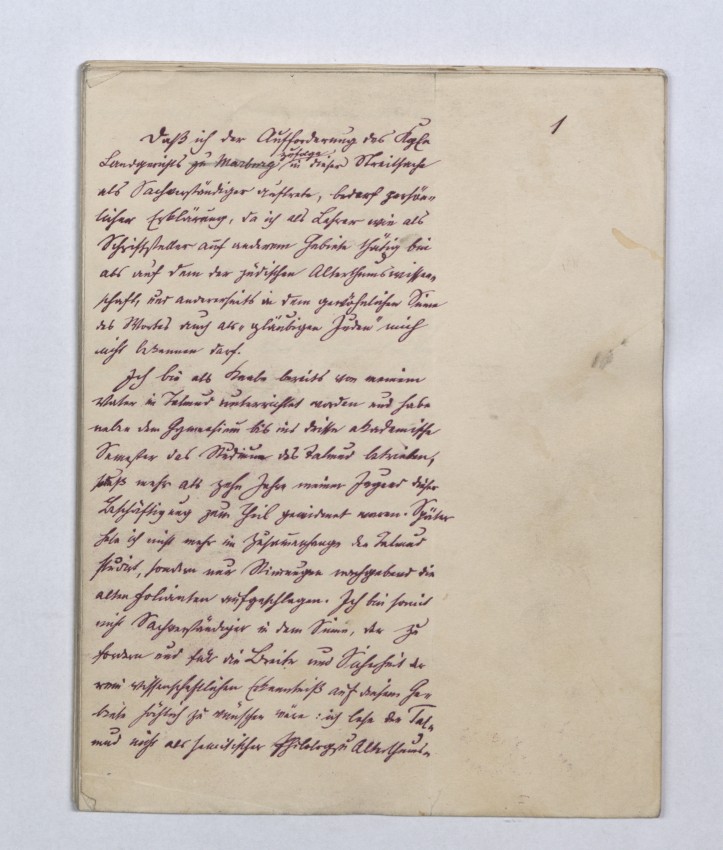 1
Daß ich der Aufforderung des Kgln
Landgerichts zu Marburg zufolge in dieser Streitsache
als Sachverständiger auftrete, bedarf persön-
licher Erklärung, da ich als Lehrer wie als
Schriftsteller auf anderem Gebiete thätig bin
als auf dem der jüdischen Alterthumswissen-
schaft, und andererseits in dem gewöhnlichen Sinne
des Wortes auch als „gläubigen Juden“ mich
nicht bekennen darf.
Ich bin als Knabe bereits von meinem
Vater in Talmud unterrichtet worden und habe
neben dem Gymnasium bis ins dritte akademische
Semester das Studium des Talmud betrieben,
mehr als zehn Jahre meiner Jugend dieser
Beschäftigung zum Theil gewidmet waren. Später
habe ich nicht mehr im Zusammenhange den Talmud
studirt, sondern nur Stimmungen nachgebend die
alten Folianten aufgeschlagen. Ich bin somit
nicht Sachverständiger in dem Sinne, der zu
fordern und für die Breite und Sicherheit der
rein wissenschaftlichen Erkenntniß auf diesem Ge-
biete höchlich zu wünschen wäre: ich lese den Tal-
mud nicht als semitischer Philolog u Alterthums-